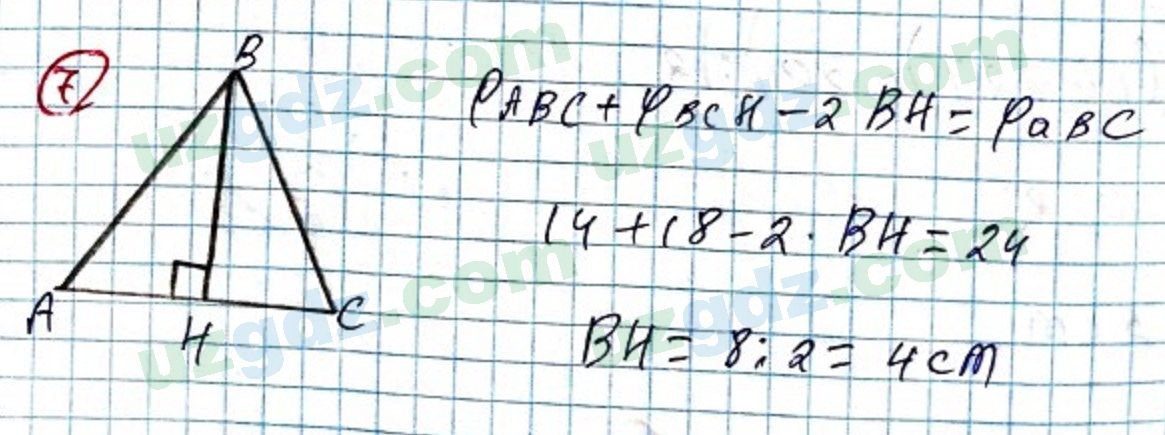 7
B
A
H
C
PABC + PBCH - 2 BH = PaBC
14 + 18 - 2 · BH = 24
BH = 8 : 2 = 4 cm
uzgdz.com
uzgdz.com
uzgdz.com
uzgdz.com
uzgdz.com